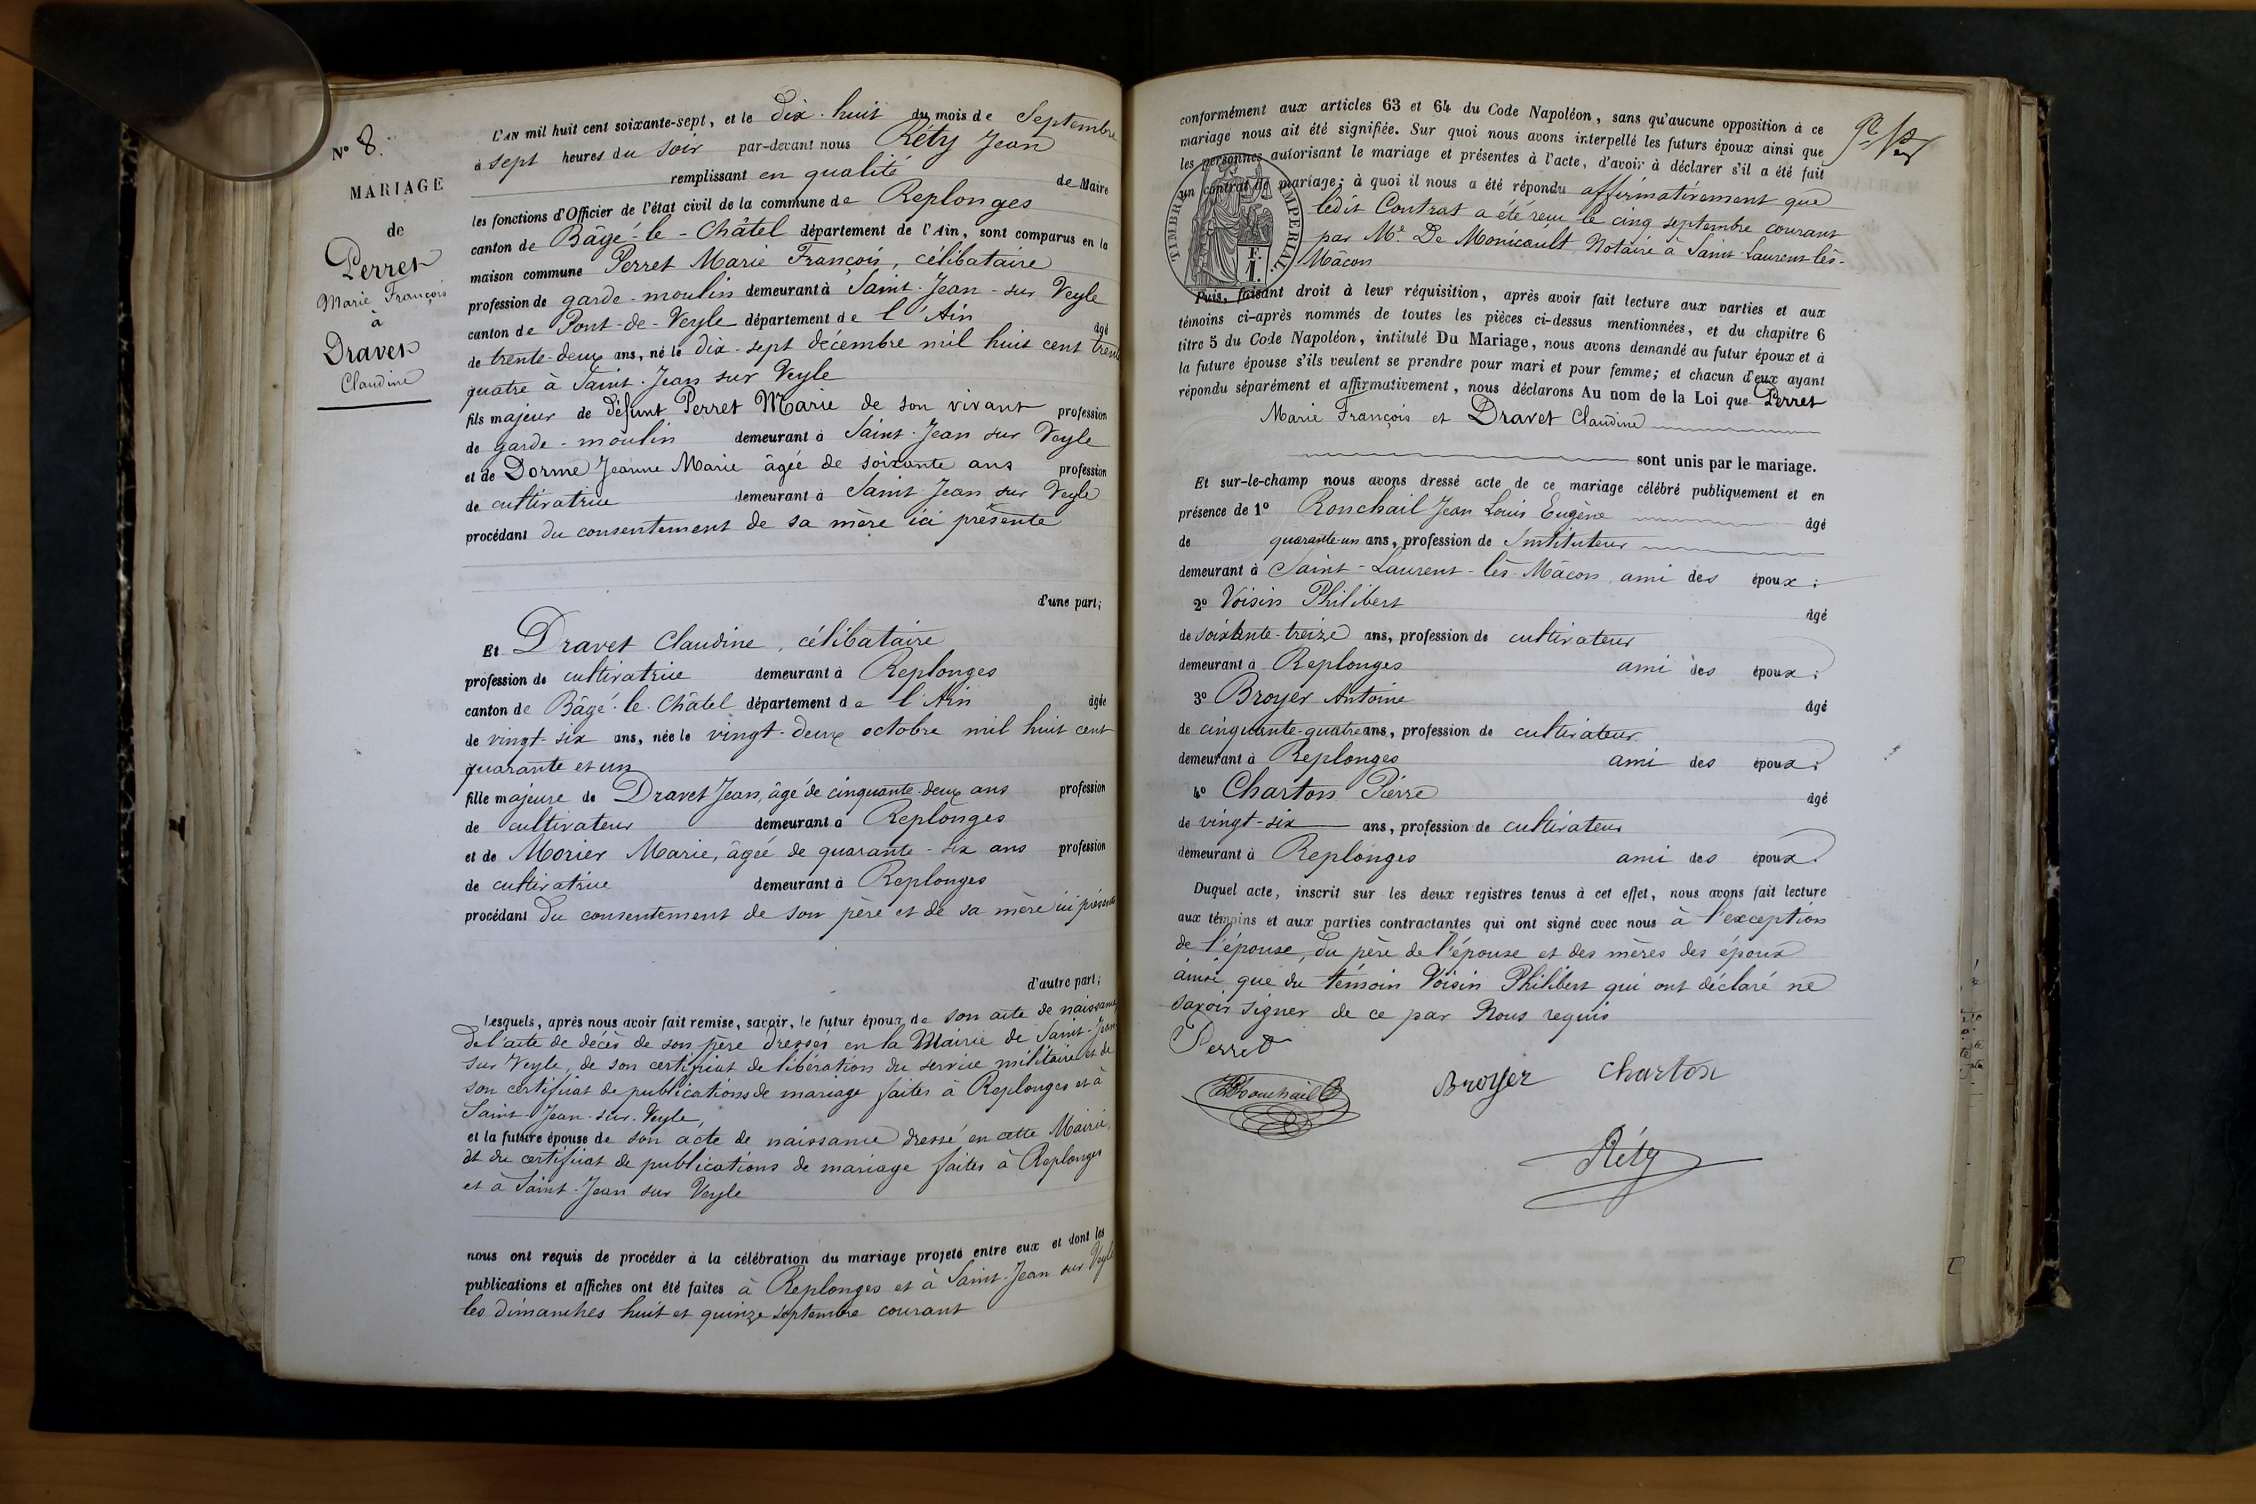 N° 8.
MARIAGE
de
Perret
Marie François
à
Dravet
Claudine
L'AN mil huit cent soixante-sept, et le dix-huit du mois de Septembre
à sept heures du soir par-devant nous Réty Jean
remplissant en qualité de Maire
les fonctions d'Officier de l'état civil de la commune de Replonges
canton de Bâgé-le-Châtel département de l'Ain, sont comparus en la
maison commune Perret Marie François, célibataire
profession de garde-moulin demeurant à Saint-Jean-sur Veyle
canton de Pont-de-Veyle département de l'Ain âgé
de trente-deux ans, né le dix-sept décembre mil huit cent trente
quatre à Saint-Jean sur Veyle
fils majeur de défunt Perret Marie de son vivant profession
de garde-moulin demeurant à Saint-Jean sur Veyle
et de Dorme Jeanne Marie âgée de soixante ans profession
de cultivatrice demeurant à Saint Jean sur Veyle
procédant du consentement de sa mère ici présente
d'une part;
Et Dravet Claudine, célibataire
profession de cultivatrice demeurant à Replonges
canton de Bâgé-le-Châtel département de l'Ain âgée
de vingt-six ans, née le vingt-deux octobre mil huit cent
quarante et un
fille majeure de Dravet Jean, âgé de cinquante-deux ans profession
de cultivateur demeurant à Replonges
et de Morier Marie, âgée de quarante-six ans profession
de cultivatrice demeurant à Replonges
procédant du consentement de son père et de sa mère ici présents
d'autre part;
Lesquels, après nous avoir fait remise, savoir, le futur époux de son acte de naissance
de l'acte de décès de son père dressés en la Mairie de Saint-Jean
sur Veyle, de son certificat de libération du service militaire et de
son certificat de publications de mariage faites à Replonges et à
Saint-Jean-sur-Veyle,
et la future épouse de son acte de naissance dressé en cette Mairie,
et du certificat de publications de mariage faites à Replonges
et à Saint-Jean sur Veyle
nous ont requis de procéder à la célébration du mariage projeté entre eux et dont les
publications et affiches ont été faites à Replonges et à Saint-Jean sur Veyle
les dimanches huit et quinze septembre courant
conformément aux articles 63 et 64 du Code Napoléon, sans qu'aucune opposition à ce
mariage nous ait été signifiée. Sur quoi nous avons interpellé les futurs époux ainsi que
les personnes autorisant le mariage et présentes à l'acte, d'avoir à déclarer s'il a été fait
un contrat de mariage; à quoi il nous a été répondu affirmativement que
ledit Contrat a été reçu le cinq septembre courant
par Me. De Monicault Notaire à Saint-Laurent-lès-
Mâcon
TIMBRE IMPERIAL.
F.
1.
Puis, faisant droit à leur réquisition, après avoir fait lecture aux parties et aux
témoins ci-après nommés de toutes les pièces ci-dessus mentionnées, et du chapitre 6
titre 5 du Code Napoléon, intitulé Du Mariage, nous avons demandé au futur époux et à
la future épouse s'ils veulent se prendre pour mari et pour femme; et chacun d'eux ayant
répondu séparément et affirmativement, nous déclarons Au nom de la Loi que Perret
Marie François et Dravet Claudine
sont unis par le mariage.
Et sur-le-champ nous avons dressé acte de ce mariage célébré publiquement et en
présence de 1° Ronchail Jean Louis Eugène âgé
de quarante-un ans, profession de Instituteur
demeurant à Saint-Laurent-lès-Mâcon, ami des époux;
2° Voisin Philibert âgé
de soixante-treize ans, profession de cultivateur
demeurant à Replonges ami des époux;
3° Broyer Antoine âgé
de cinquante-quatre ans, profession de cultivateur
demeurant à Replonges ami des époux;
4° Charton Pierre âgé
de vingt-six ans, profession de cultivateur
demeurant à Replonges ami des époux.
Duquel acte, inscrit sur les deux registres tenus à cet effet, nous avons fait lecture
aux témoins et aux parties contractantes qui ont signé avec nous à l'exception
de l'épouse, du père de l'épouse et des mères des époux
ainsi que du témoin Voisin Philibert qui ont déclaré ne
savoir signer de ce par Nous requis
Perret
Ronchail
Broyer
Charton
Réty